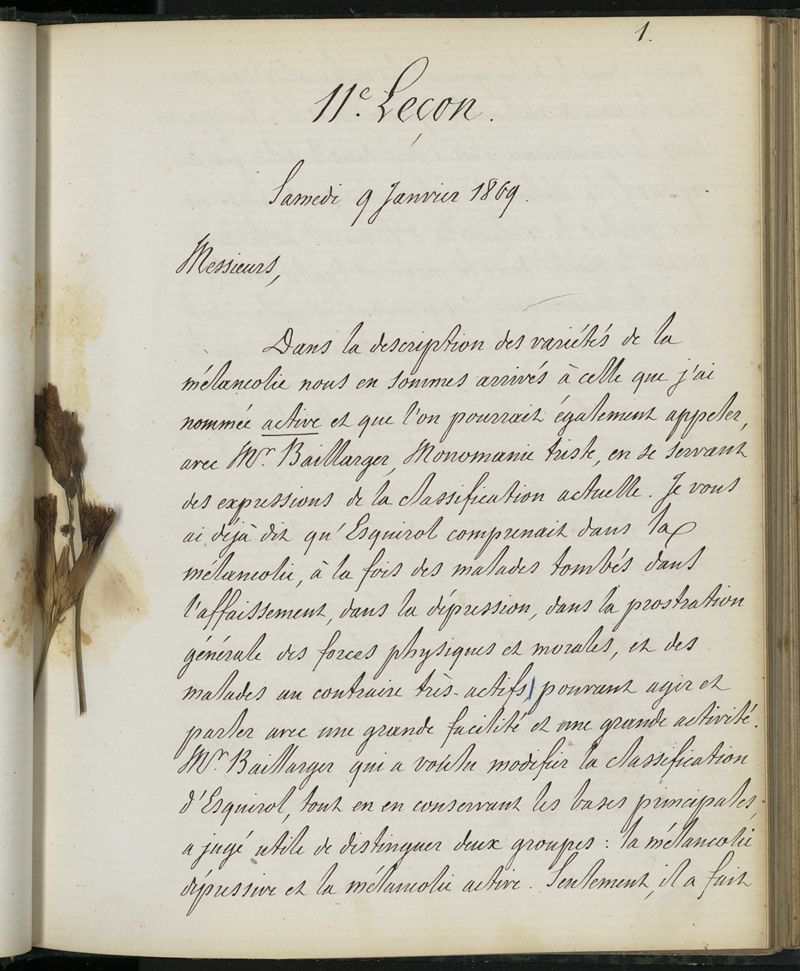 1.
11e. Leçon.
Samedi 9 Janvier 1869.
Messieurs,
Dans la description des variétés de la
mélancolie nous en sommes arrivés à celle que j'ai
nommée active et que l'on pourrait également appeler,
avec Mr. Baillarger, Monomanie triste, en se servant
des expressions de la classification actuelle. Je vous
ai déjà dit qu'Esquirol comprenait dans la
mélancolie, à la fois des malades tombés dans
l'affaissement, dans la dépression, dans la prostration
générale des forces physiques et morales, et des
malades au contraire très-actifs, pouvant agir et
parler avec une grande facilité et une grande activité.
Mr Baillarger qui a voulu modifier la classification
d'Esquirol, tout en en conservant les bases principales,
a jugé utile de distinguer deux groupes : la mélancolie
dépressive et la mélancolie active. Seulement, il a fait